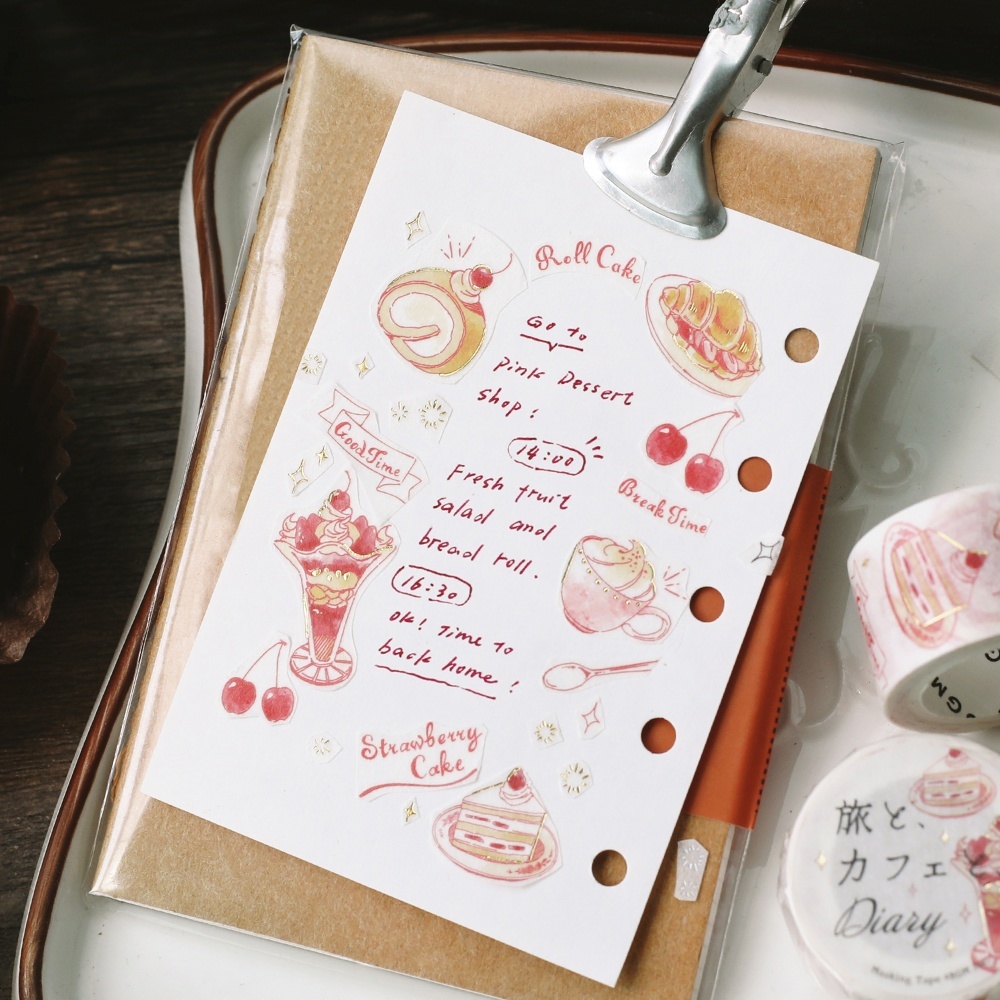 Roll Cake
Go to
Pink Dessert
shop!
14:00
Good Time
Fresh fruit
salad and
bread roll.
Break Time
16:30
ok! Time to
back home!
Strawberry
Cake
BGM
旅と、
カフェと
Diary
Masking Tape FROM